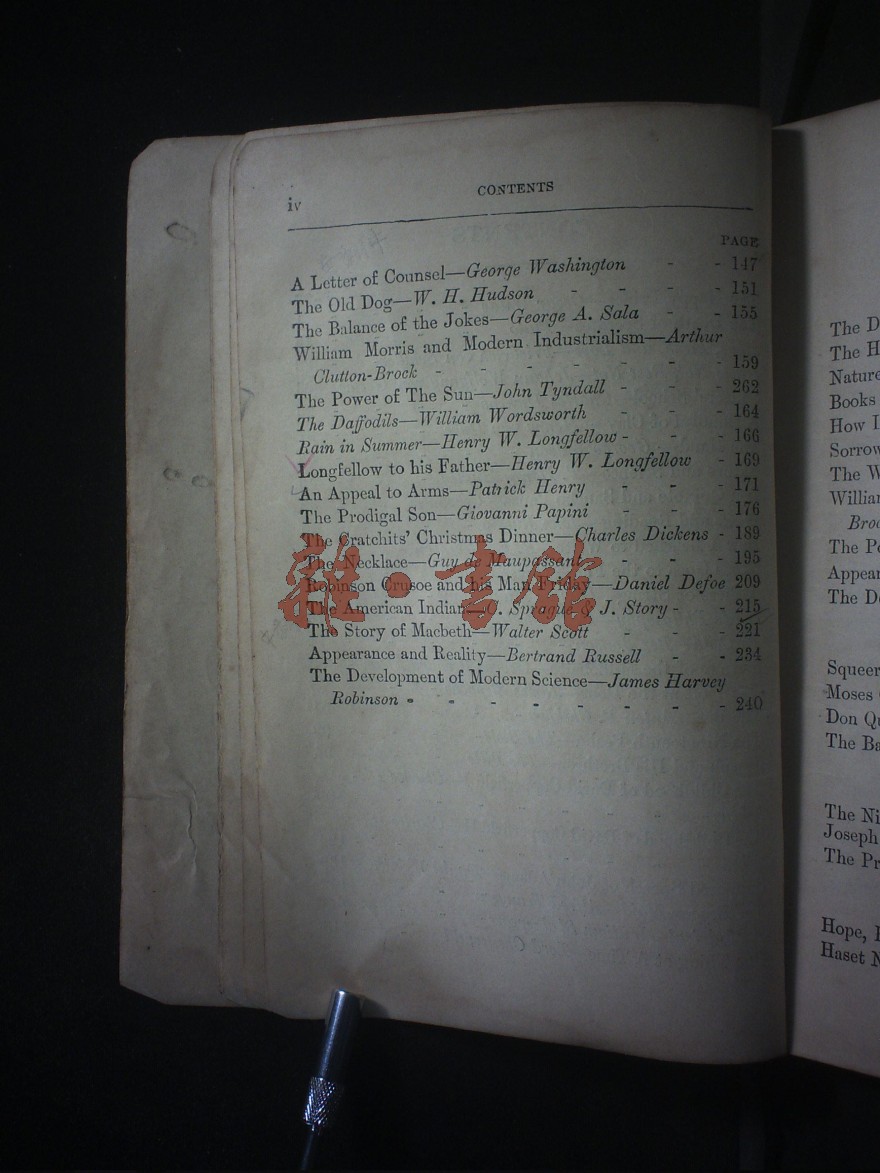 iv CONTENTS
PAGE
A Letter of Counsel—George Washington - - 147
The Old Dog—W. H. Hudson - - - - 151
The Balance of the Jokes—George A. Sala - - 155
William Morris and Modern Industrialism—Arthur
Clutton-Brock - - - - - - - - 159
The Power of The Sun—John Tyndall - - - 262
The Daffodils—William Wordsworth - - - 164
Rain in Summer—Henry W. Longfellow - - - 166
Longfellow to his Father—Henry W. Longfellow - 169
An Appeal to Arms—Patrick Henry - - - 171
The Prodigal Son—Giovanni Papini - - - 176
The Cratchits' Christmas Dinner—Charles Dickens - 189
The Necklace—Guy de Maupassant - - - 195
Robinson Crusoe and his Man Friday—Daniel Defoe 209
The American Indian—C. Sprague & J. Story - - 215
The Story of Macbeth—Walter Scott - - - 221
Appearance and Reality—Bertrand Russell - - 234
The Development of Modern Science—James Harvey
Robinson - - - - - - - - 240
雜·書館
The D
The H
Nature
Books
How I
Sorrow
The W
Willia
Broc
The Po
Appear
The De
Squeer
Moses
Don Qu
The Ba
The Ni
Joseph
The Pr
Hope,
Haset N